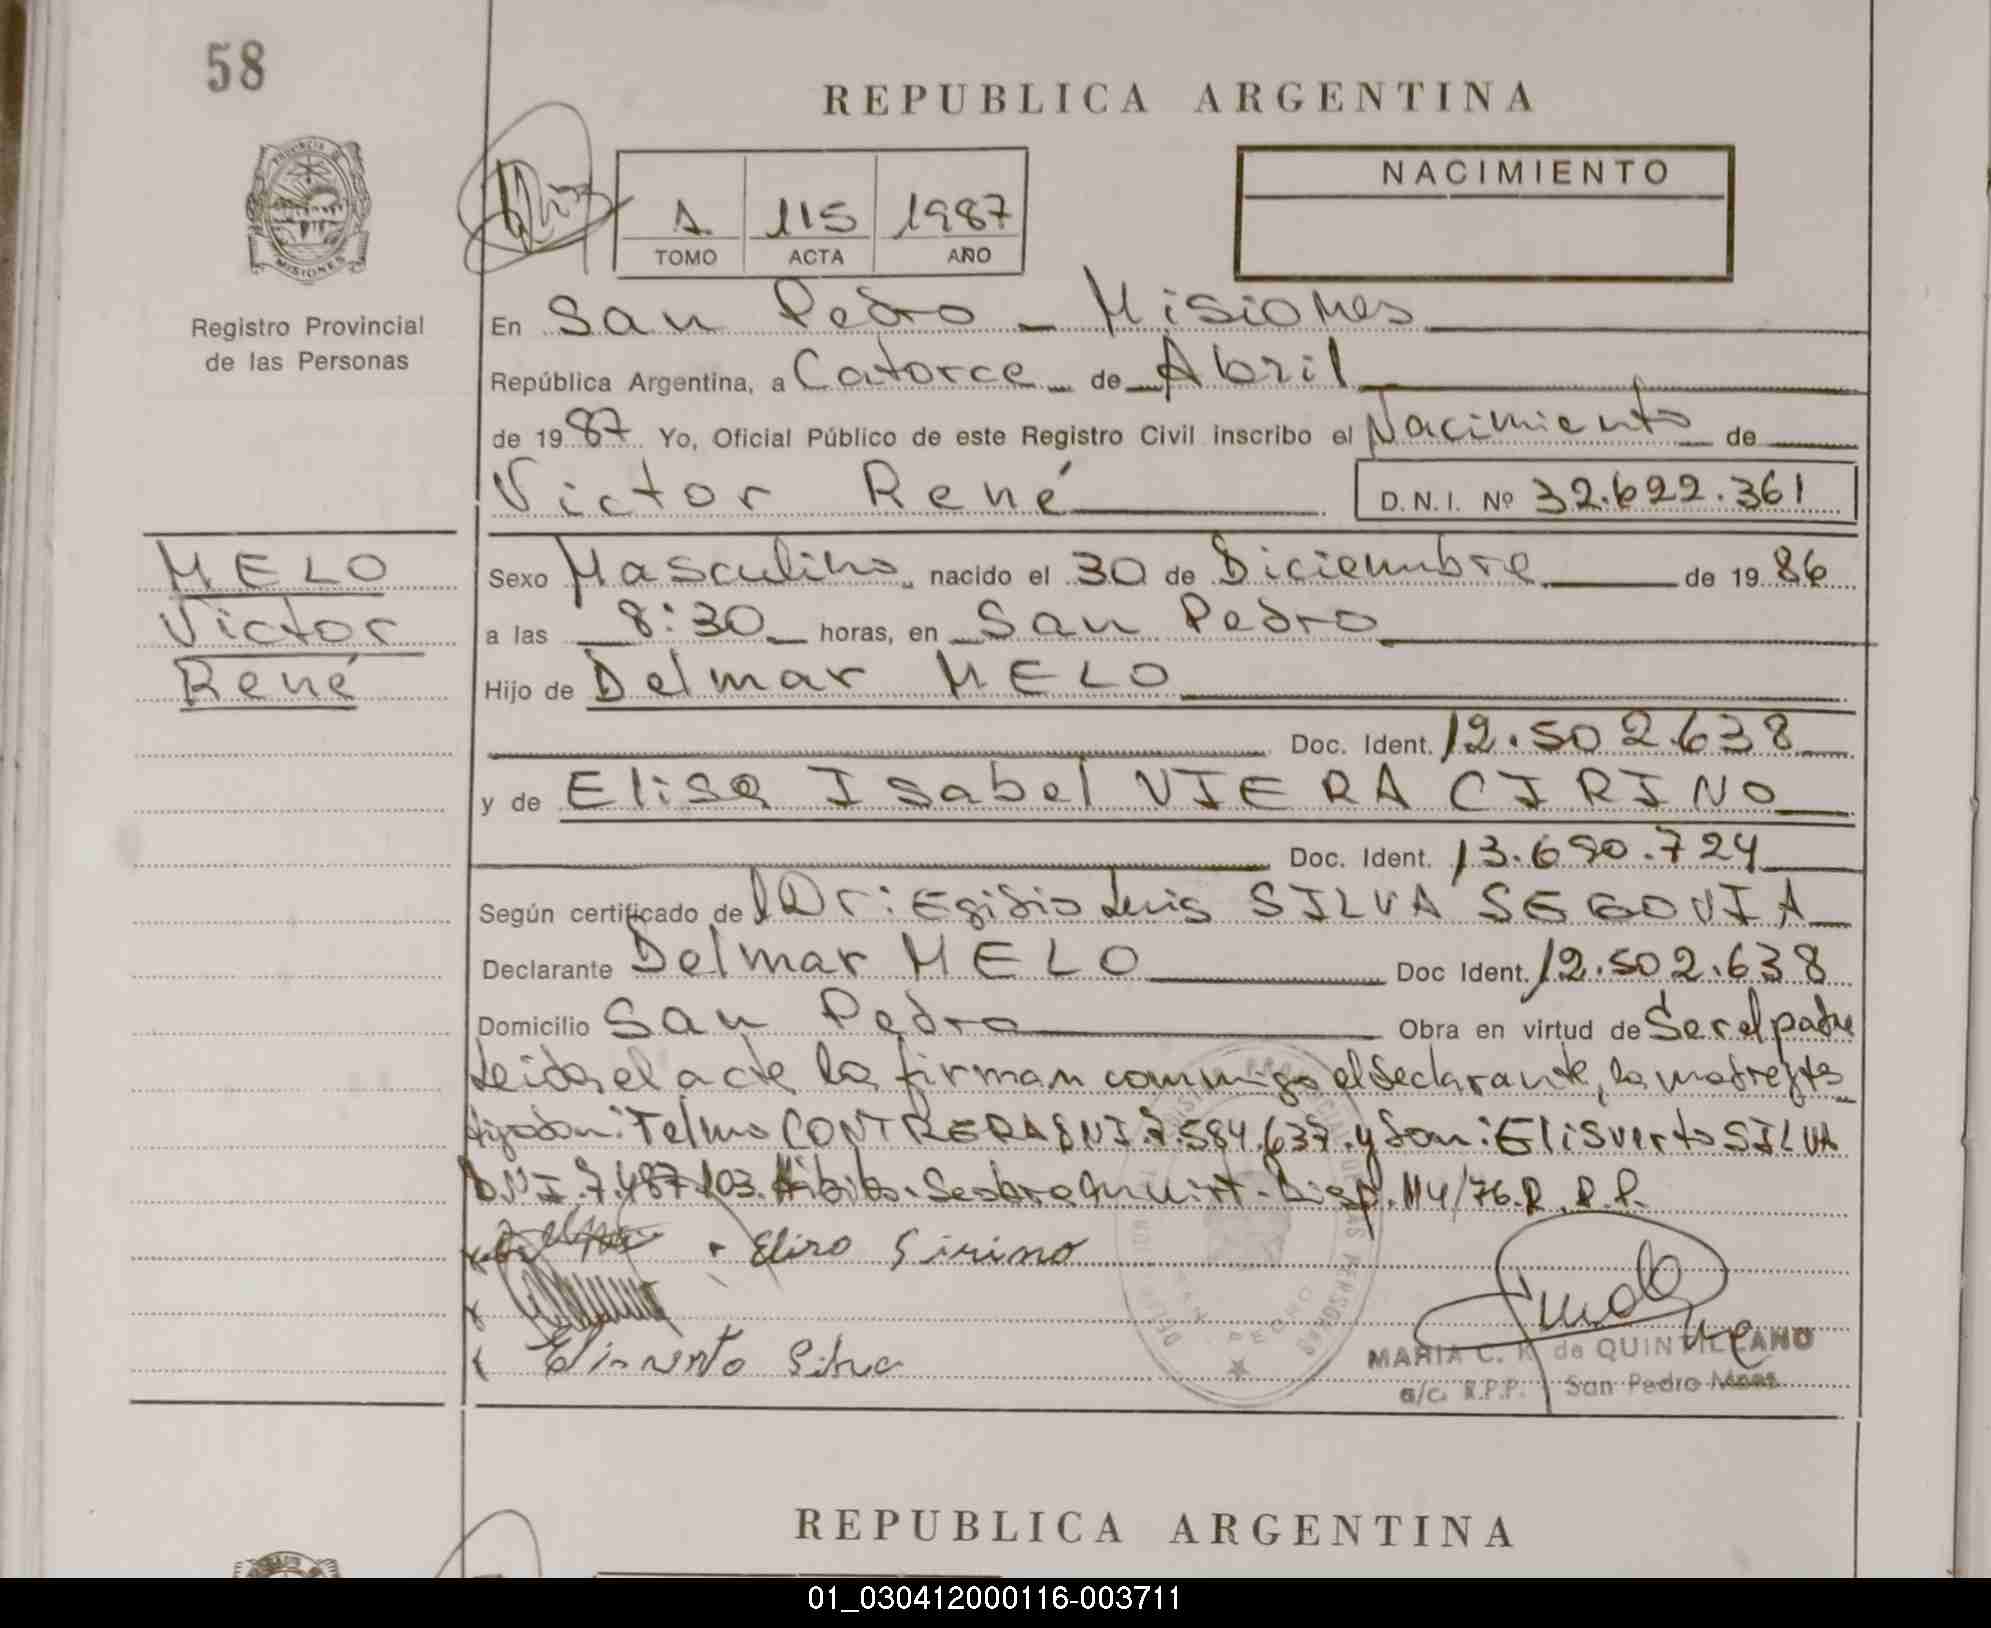 58
REPUBLICA ARGENTINA
PROVINCIA DE
MISIONES
Registro Provincial
de las Personas
1 115 1987
TOMO ACTA AÑO
NACIMIENTO
En San Pedro - Misiones
República Argentina, a Catorce de Abril
de 1987 Yo, Oficial Público de este Registro Civil inscribo el Nacimiento de
Victor René D.N.I. Nº 32.622.361
MELO
Victor
René
Sexo Masculino nacido el 30 de Diciembre de 1986
a las 8:30 horas, en San Pedro
Hijo de Delmar MELO
Doc. Ident. 12.502.638
y de Elisa Isabel VIERA CIRINO
Doc. Ident. 13.690.724
Según certificado de Dr: Egidio Luis SILVA SEGOVIA
Declarante Delmar MELO Doc Ident. 12.502.638
Domicilio San Pedro Obra en virtud de Ser el padre
Leida el acta la firman conmigo el declarante, la madre y tes
tigos don: Telmo CONTRERA DNI.7.584.637.y Don: Elisverto SILVA
DNI.7.487.103. Disp.114/76.R.P.P.
Eliso Sirino
Elisverto Silva
MARIA C. R. de QUINTILLANO
a/c. R.P.P. San Pedro Mnes.
SAN PEDRO
REPUBLICA ARGENTINA
01_030412000116-003711